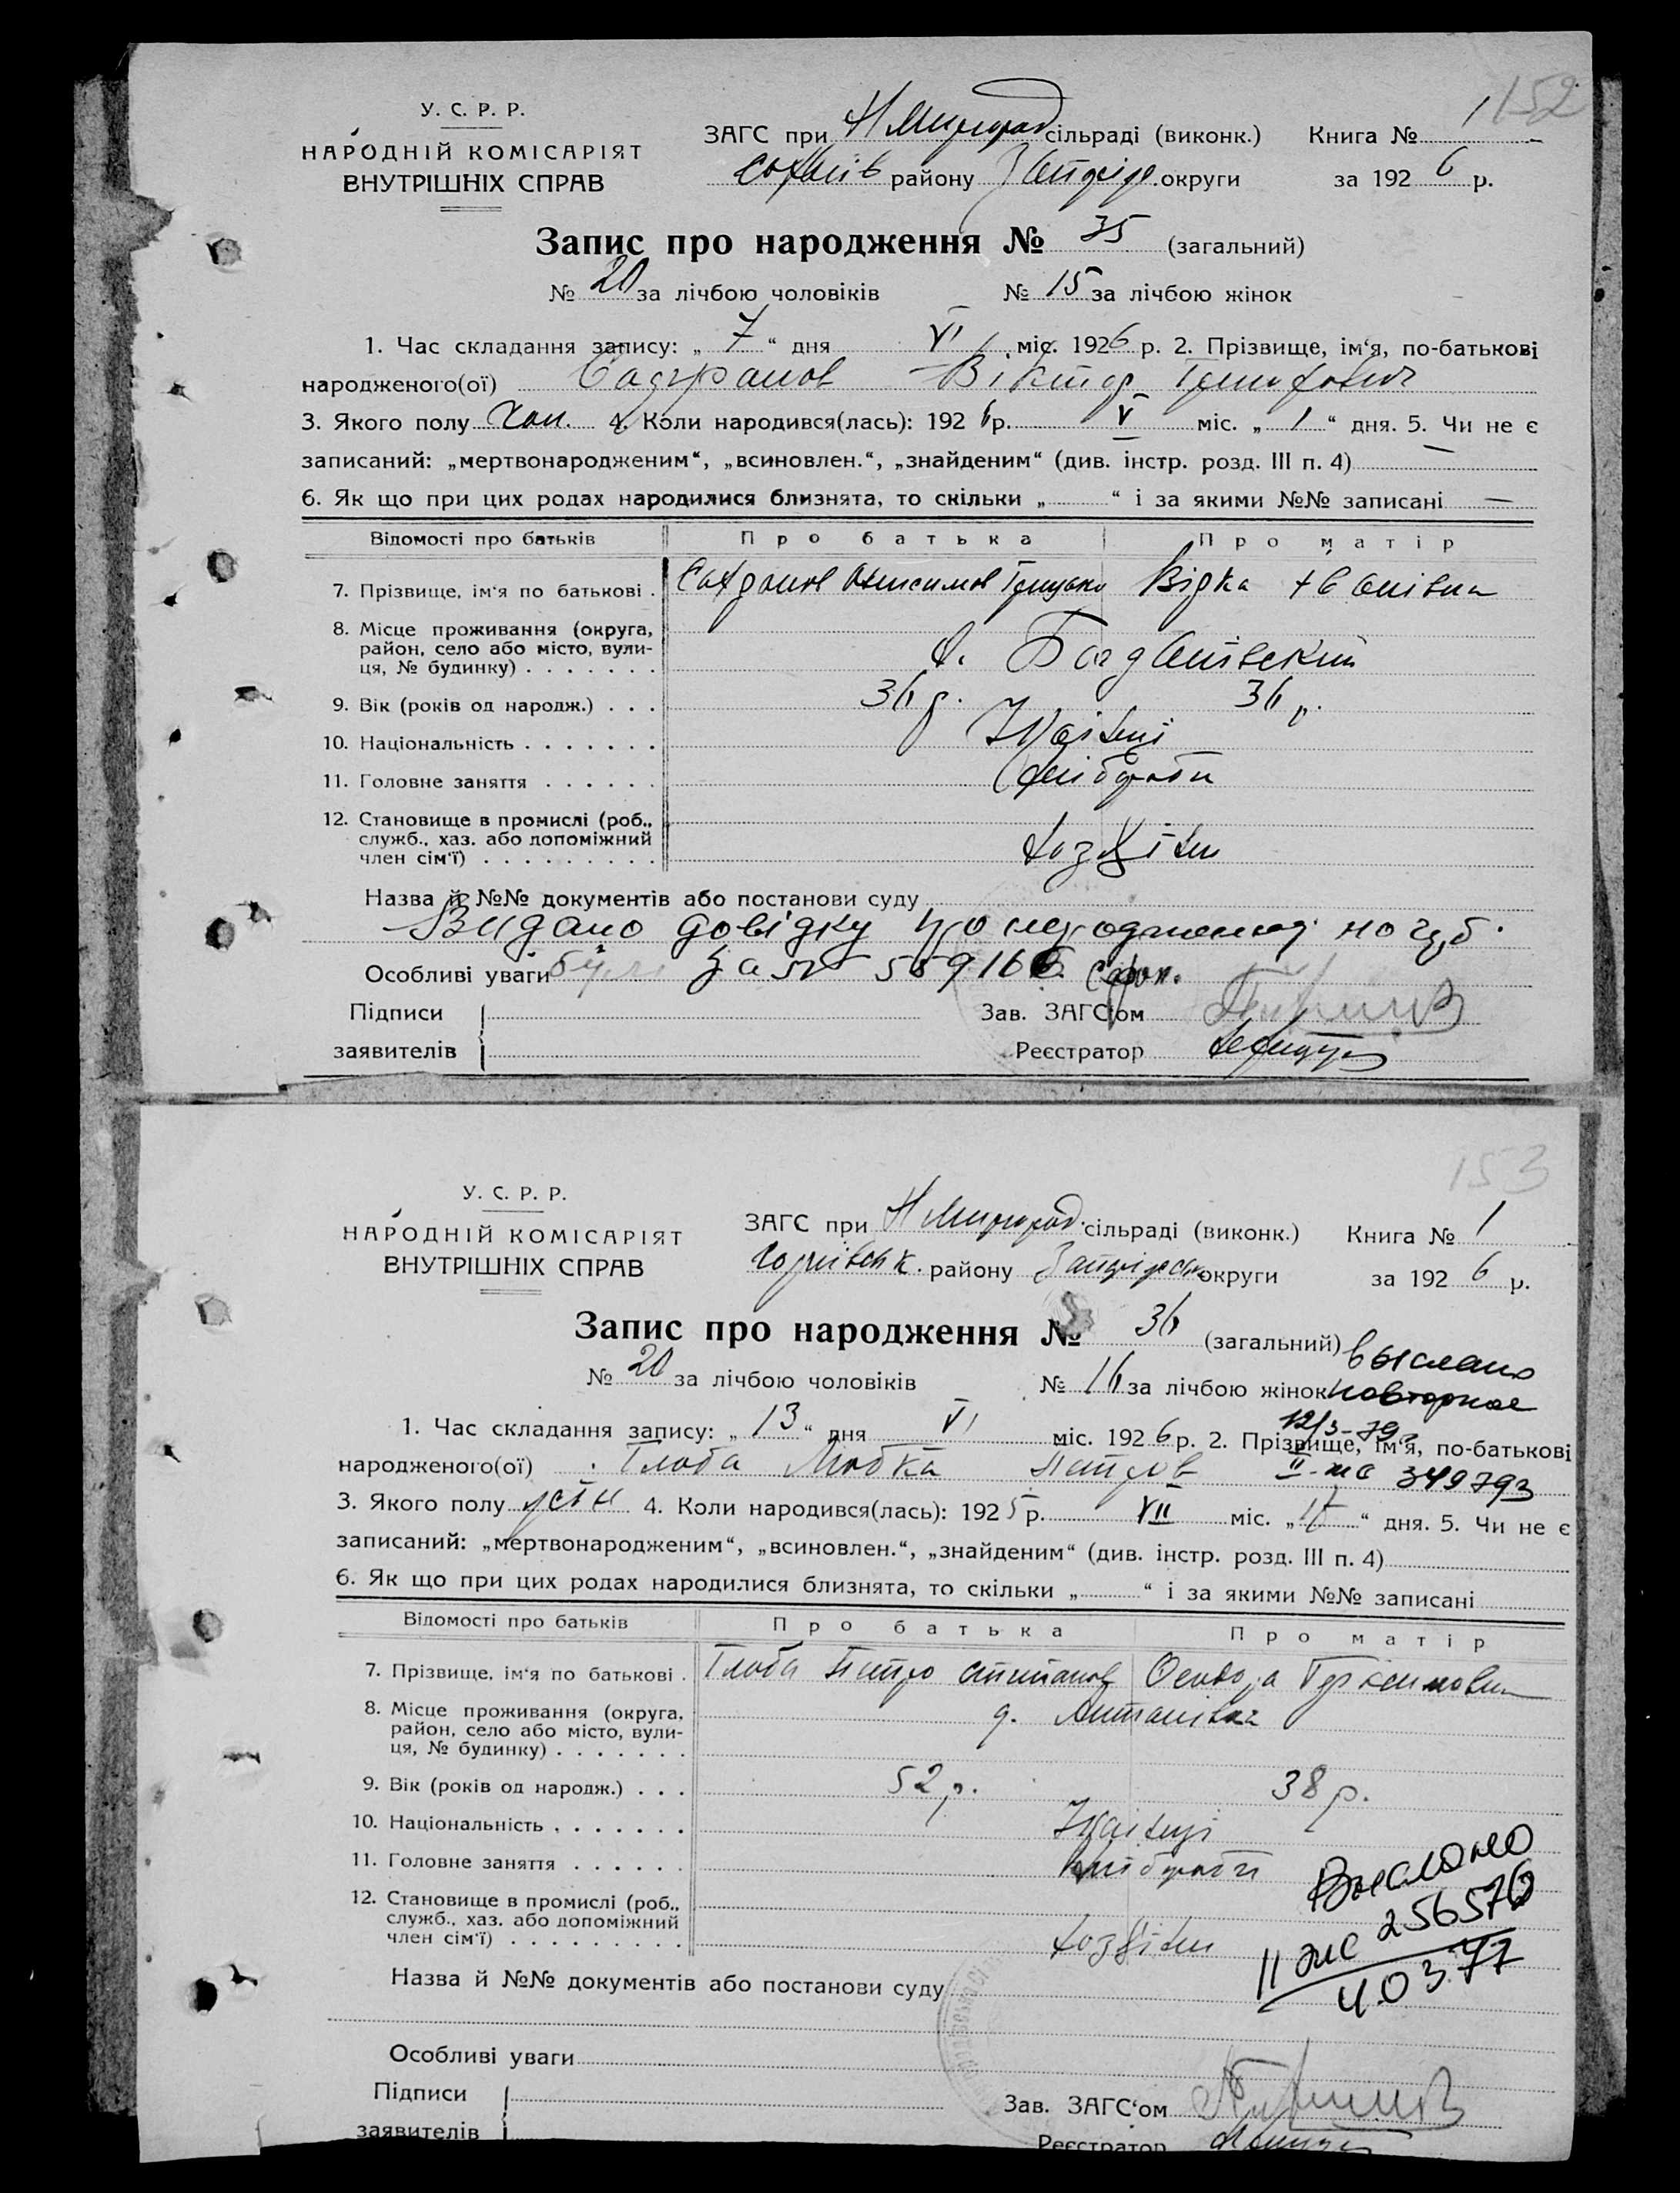 152
У. С. Р. Р.
НАРОДНІЙ КОМІСАРІЯТ
ВНУТРІШНІХ СПРАВ
ЗАГС при Н Миргород сільраді (виконк.) Книга № 1
району округи за 1926 р.
Запис про народження № 35 (загальний)
№ 20 за лічбою чоловіків № 15 за лічбою жінок
1. Час складання запису: „ 7 “ дня VI міс. 1926 р. 2. Прізвище, ім‘я, по-батькові
народженого(ої) Віктор
3. Якого полу чол. 4. Коли народився(лась): 1926 р. V міс. „ 1 “ дня. 5. Чи не є
записаний: „мертвонародженим“, „всиновлен.“, „знайденим“ (див. інстр. розд. III п. 4) —
6. Як що при цих родах народилися близнята, то скільки „ “ і за якими №№ записані —
Відомості про батьків Про батька Про матір
7. Прізвище, ім‘я по батькові . Онисимов Грицько Вірка
8. Місце проживання (округа,
район, село або місто, вули-
ця, № будинку) . . . . . . .
9. Вік (років од народж.) . . . 36 р. 36 р.
10. Національність . . . . . . . Українці
11. Головне заняття . . . . . . хлібороби
12. Становище в промислі (роб.,
служб., хаз. або допоміжний
член сім‘ї) . . . . . . . . .
Назва й №№ документів або постанови суду
Видано довідку про народження
Особливі уваги за №
Підписи
заявителів
Зав. ЗАГС‘ом
Реєстратор
153
У. С. Р. Р.
НАРОДНІЙ КОМІСАРІЯТ
ВНУТРІШНІХ СПРАВ
ЗАГС при Н Миргород. сільраді (виконк.) Книга № 1
району округи за 1926 р.
Запис про народження № 36 (загальний)
выслано
№ 20 за лічбою чоловіків № 16 за лічбою жінок
повторное
12/3-79
1. Час складання запису: „ 13 “ дня VI міс. 1926 р. 2. Прізвище, ім‘я, по-батькові
народженого(ої) Глоба Любка Петров II-жс 349793
3. Якого полу жін 4. Коли народився(лась): 1925 р. VII міс. „ “ дня. 5. Чи не є
записаний: „мертвонародженим“, „всиновлен.“, „знайденим“ (див. інстр. розд. III п. 4)
6. Як що при цих родах народилися близнята, то скільки „ “ і за якими №№ записані
Відомості про батьків Про батька Про матір
7. Прізвище, ім‘я по батькові . Глоба Петро Степанов
8. Місце проживання (округа,
район, село або місто, вули-
ця, № будинку) . . . . . . .
9. Вік (років од народж.) . . . 52 р. 38 р.
10. Національність . . . . . . . Українці
11. Головне заняття . . . . . . хлібороби
12. Становище в промислі (роб.,
служб., хаз. або допоміжний
член сім‘ї) . . . . . . . . .
Выслано
II жс 256576
4.03.77
Назва й №№ документів або постанови суду
Особливі уваги
Підписи
заявителів
Зав. ЗАГС‘ом
Реєстратор